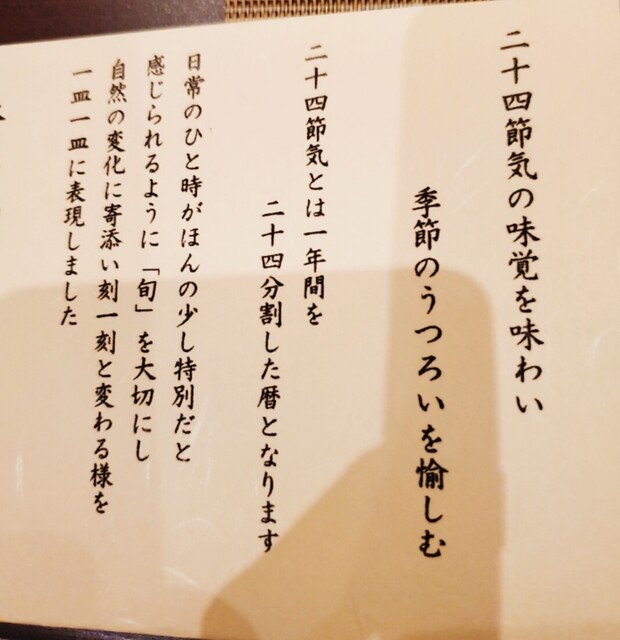 二十四節気の味覚を味わい
季節のうつろいを愉しむ
二十四節気とは一年間を
二十四分割した暦となります
日常のひと時がほんの少し特別だと
感じられるように「旬」を大切にし
自然の変化に寄添い刻一刻と変わる様を
一皿一皿に表現しました